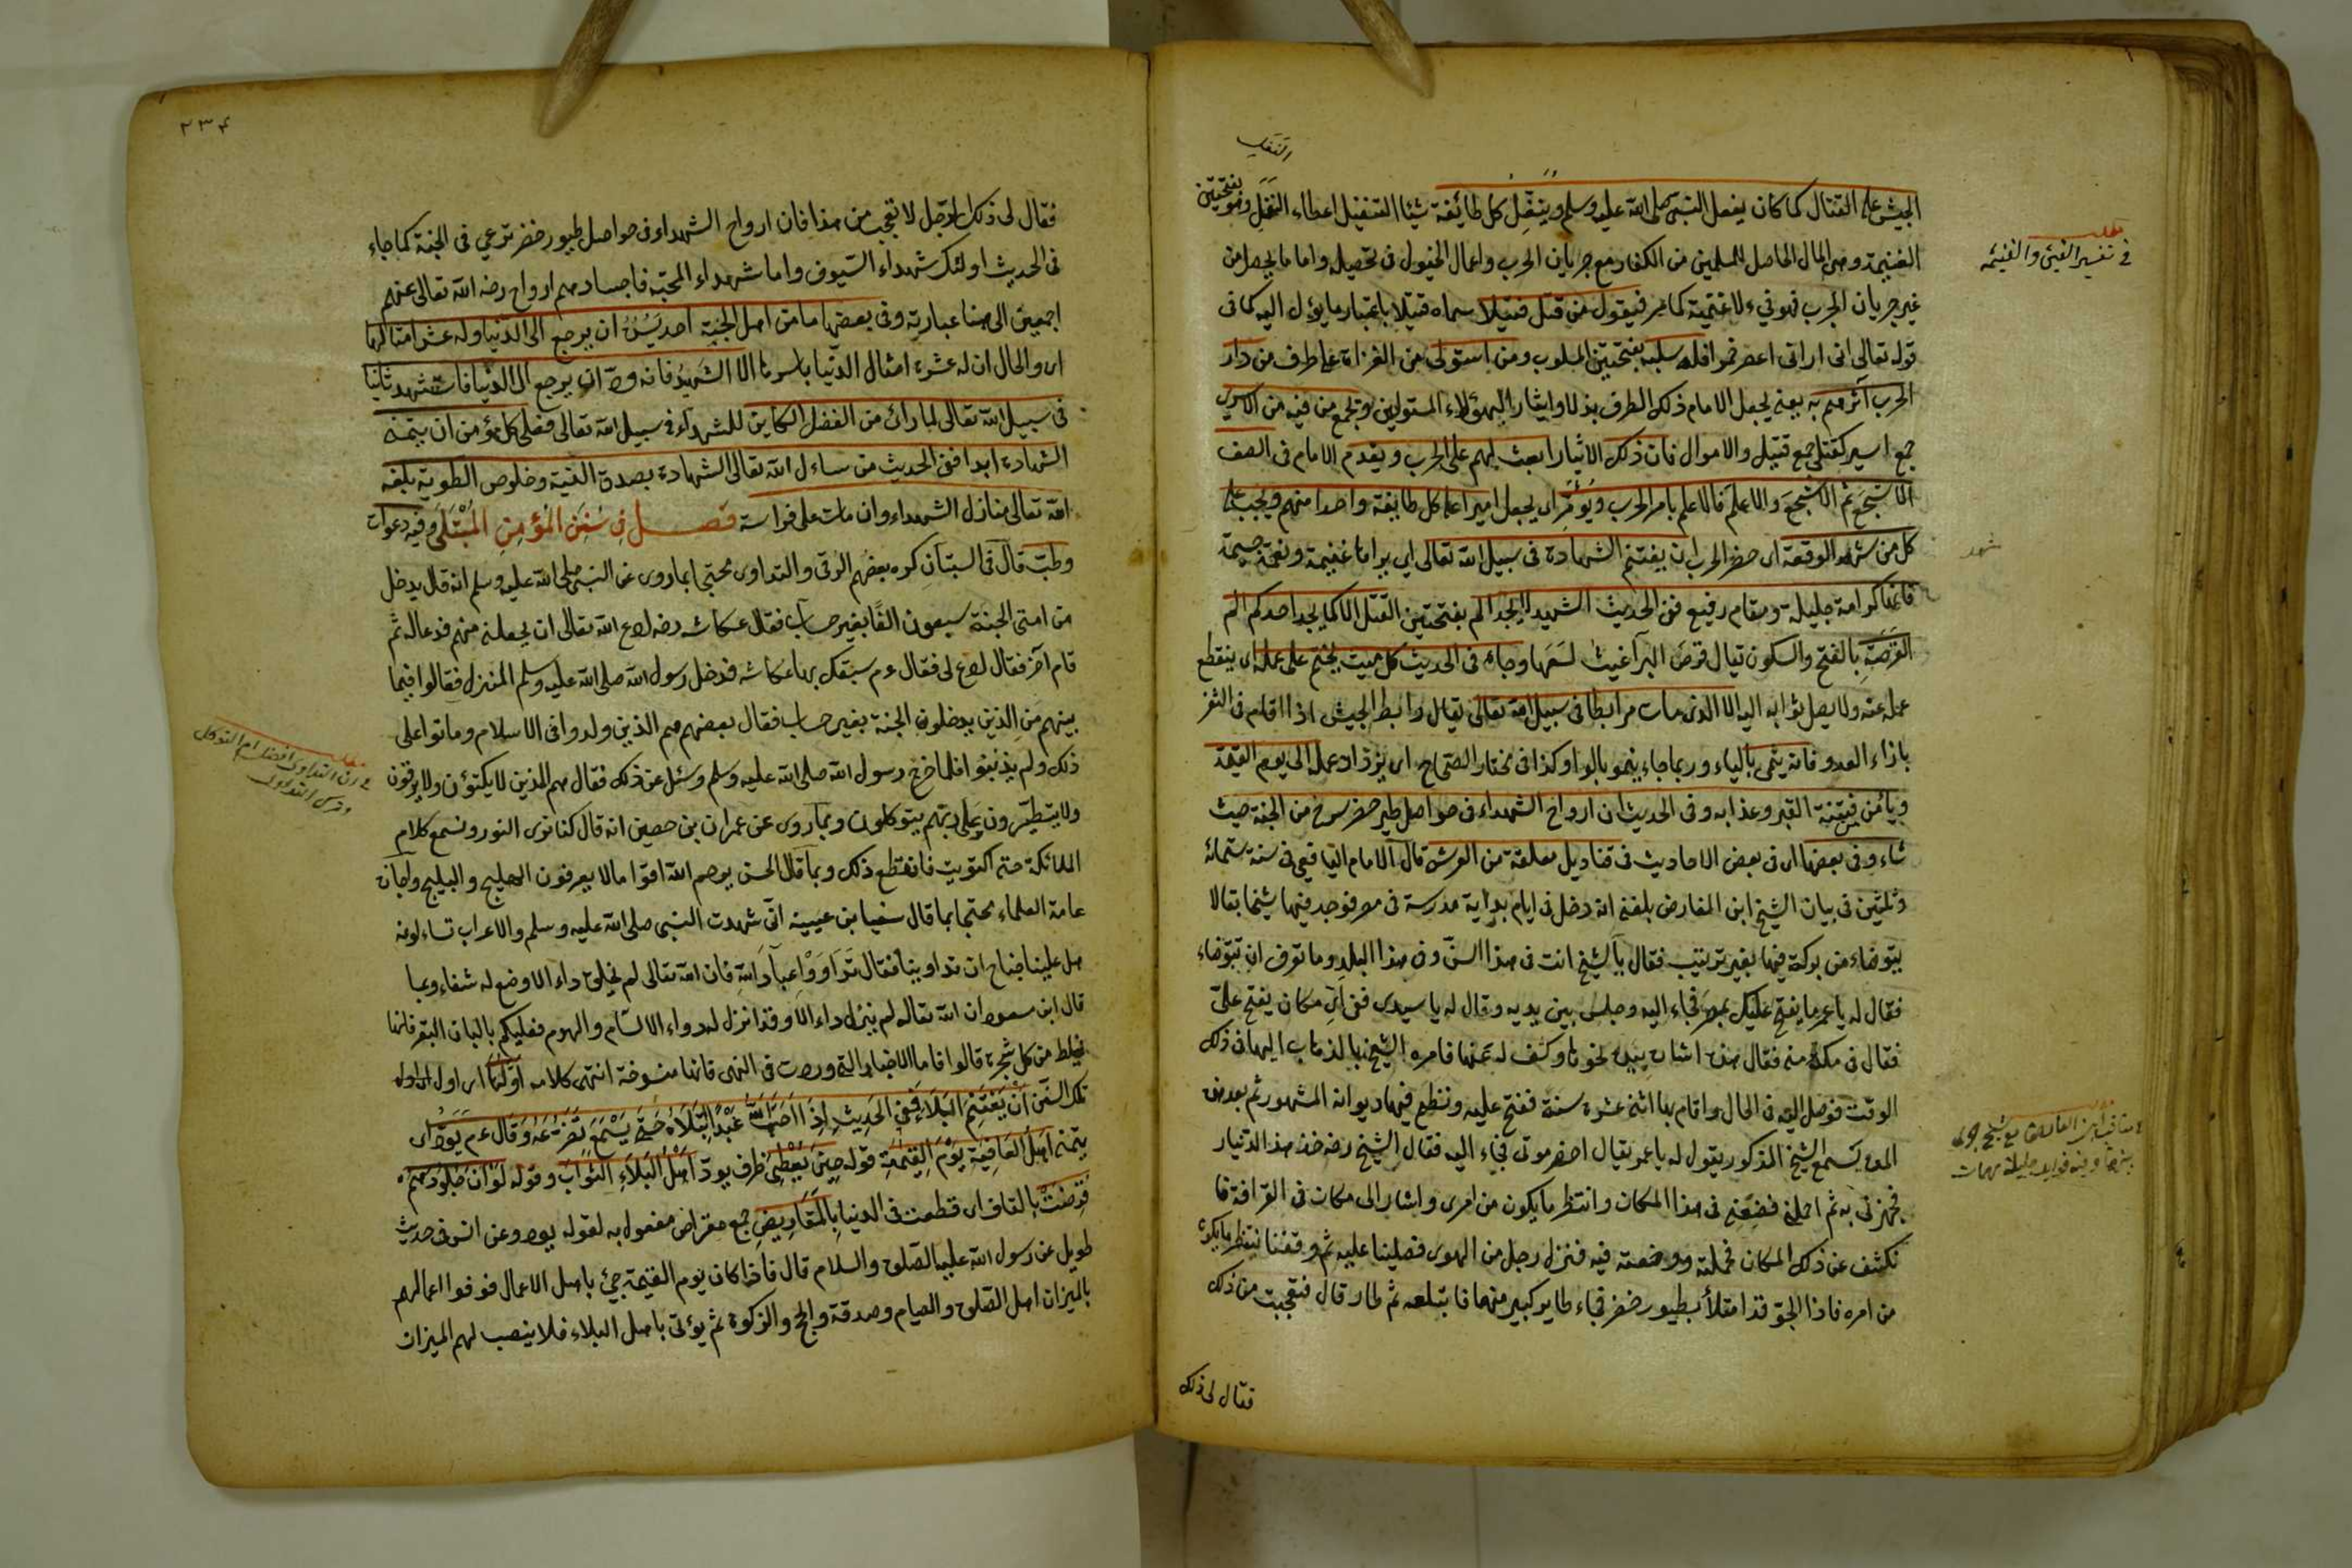 التنفيل
الجيش على القتال كما كان يفعل النبى صلى الله عليه وسلم وينفل كل طائفة شيئا التنفيل اعطاء النفل وهو بفتحتين
الغنيمة وهى المال الحاصل للمسلمين من الكفار مع جريان الحرب واعمال الخيول فى تحصيله واما ما يحصل من
غير جريان الحرب فهو فيء لا غنيمة كما مر فيقول من قتل قتيلا سماه قتيلا باعتبار ما يؤل اليه كما فى
قوله تعالى انى ارانى اعصر خمرا فله سلبه بفتحتين المسلوب ومن استولى من الغزاة على طرف من دار
الحرب آثرهم به يعنى يجعل الامام ذلك الطرف بذلا وايثارا لهؤلاء المستولين وتجمع من فيه من الاسرى
جمع اسير كقتلى جمع قتيل والاموال فان ذلك الايثار ابعث لهم على الحرب ويقدم الامام فى الصف
الاشجع ثم الاشجع والاعلم فالاعلم بامر الحرب ويؤمر اى يجعل اميرا على كل طائفة واحدا منهم ويجب على
كل من شهد الوقعة اى حضر الحرب ان يغتنم الشهادة فى سبيل الله تعالى اى يراها غنيمة ونعمة جسيمة
فانها كرامة جليلة ومقام رفيع ففى الحديث الشهيد لا يجد الم بفتحتين القتل الا كما يجد احدكم الم
القرصة بالفتح والسكون يقال قرص البراغيث لسعها وجاء فى الحديث كل ميت يختم على عمله اى ينقطع
عمله عنه ولا يصل ثوابه اليه الا الذى مات مرابطا فى سبيل الله تعالى يقال رابط الجيش اذا اقام فى الثغر
بازاء العدو فانه ينمى بالياء وربما جاء ينمو بالواو كذا فى مختار الصحاح اى يزداد عمله الى يوم القيمة
ويأمن فتنة القبر وعذابه وفى الحديث ان ارواح الشهداء فى حواصل طير خضر تسرح من الجنة حيث
شاء وفى بعضها اى فى بعض الاحاديث فى قناديل معلقة من العرش قال الامام اليافعى فى سنة ستمائة
وثلثين فى بيان الشيخ ابن الفارض بلغنى انه دخل فى ايام بدايته مدرسة فى مصر فوجد فيها شيخا بقالا
يتوضاء من بركة فيها بغير ترتيب فقال يا شيخ انت فى هذا السن وفى هذا البلد وما تعرف ان تتوضاء
فقال له يا عمر ما يفتح عليك بمصر فجاء اليه وجلس بين يديه وقال له يا سيدى ففى اى مكان يفتح على
فقال فى مكة فقال هذه اشار بيده نحوها وكشف له عنها فامره الشيخ بالذهاب اليها فى ذلك
الوقت فوصل اليه فى الحال واقام بها اثنى عشرة سنة ففتح عليه ونظم فيها ديوانه المشهور ثم بعد هذه
المدة يسمع الشيخ المذكور يقول له يا عمر تعال احضر موتى فجاء اليه فقال الشيخ رضه خذ هذا الدينار
فجهزنى به ثم احملنى فضعنى فى هذا المكان وانتظر ما يكون من امرى واشار الى مكان فى القرافة فا
نكشف عن ذلك المكان فحملته ووضعته فيه فنزل رجل من الهوى فصلينا عليه ثم وقفنا ننتظر ما يكون
من امره فاذا الجو قد امتلأ بطيور خضر فجاء طاير كبير منها فابتلعه ثم طار قال فتعجبت من ذلك
فقال لى ذلك
مطلب
فى تفسير الفيئ والغنيمه
شهد
٢٣٤
فقال لى ذلك الرجل لا تعجب من هذا فان ارواح الشهداء فى حواصل طيور خضر ترعى فى الجنة كما جاء
فى الحديث اولئك شهداء السيوف واما شهداء المحبة فاجسادهم ارواح رضى الله تعالى عنهم
اجمعين الى هنا عبارته وفى بعضها ما من اهل الجنة احد يسره ان يرجع الى الدنيا وله عشر امثالها
اى والحال ان له عشرة امثال الدنيا باسرها الا الشهيد فانه ود ان يرجع الى الدنيا فاستشهد ثانيا
فى سبيل الله تعالى لما رائ من الفضل الكاين للشهداء فى سبيل الله تعالى فعلى كل مؤمن ان يتمنى
الشهادة ابدا ففى الحديث من سائل الله تعالى الشهادة بصدق النية وخلوص الطوية بلغه
الله تعالى منازل الشهداء وان مات على فراشه فصل فى سنن المؤمن المبتلى وفيه دعوات
وطب قال فى البستان كره بعضهم الرقى والتداوى محتجا بما روى عن النبى صلى الله عليه وسلم انه قال يدخل
من امتى الجنة سبعون الفا بغير حساب فقال عكاشه رضه ادع الله تعالى ان يجعلنى منهم فدعا له ثم
قام آخر فقال ادع لى فقال ءم سبقك بها عكاشه فدخل رسول الله صلى الله عليه وسلم المنزل فقالوا فيما
بينهم من الذين يدخلون الجنة بغير حساب فقال بعضهم هم الذين ولدوا فى الاسلام وماتوا على
ذلك ولم يذنبوا فلما خرج رسول الله صلى الله عليه وسلم وسئل عن ذلك فقال هم الذين لا يكتوون ولا يرقون
ولا يتطيرون وعلى ربهم يتوكلون وبما روى عن عمران بن حصين انه قال كنا نرى النور ونسمع كلام
الملائكة حتى اكتويت فانقطع ذلك وبما قال الحسن يرحم الله اقواما لا يعرفون الهليلج والبليلج واجازه
عامة العلماء محتجا بما قال سفيان بن عيينة انى شهدت النبى صلى الله عليه وسلم والاعراب تسائلونه
هل علينا جناح ان تداوينا فقال تداووا عباد الله فان الله تعالى لم يخلق داء الا وضع له شفاء وبما
قال ابن مسعود ان الله تعالى لم ينزل داء الا وقد انزل له دواء الا السام والهرم فعليكم بالبان البقر فانها
تخلط من كل شجرة قالوا فاما الاخبار التى وردت فى النهى فانها منسوخة انتهى كلامه اولها اى اول
تلك السنن ان يغتنم البلاء ففى الحديث اذا احب الله عبدا ابتلاه حتى يسمع تضرعه وقال ءم يود اى
يتمنى اهل العافية يوم القيمة قوله حين يعطى ظرف يود اهل البلاء الثواب وقوله لو ان جلودهم
قرضت بالقاف اى قطعت فى الدنيا بالمقاريض جمع مقراض مفعول به لقوله يود وعن انس فى حديث
طويل عن رسول الله عليه الصلوة والسلام قال فاذا كان يوم القيمة جيئ باهل الاعمال فوفوا اعمالهم
بالميزان اهل الصلوة والصيام وصدقة والحج والزكوة ثم يؤتى باهل البلاء فلا ينصب لهم الميزان